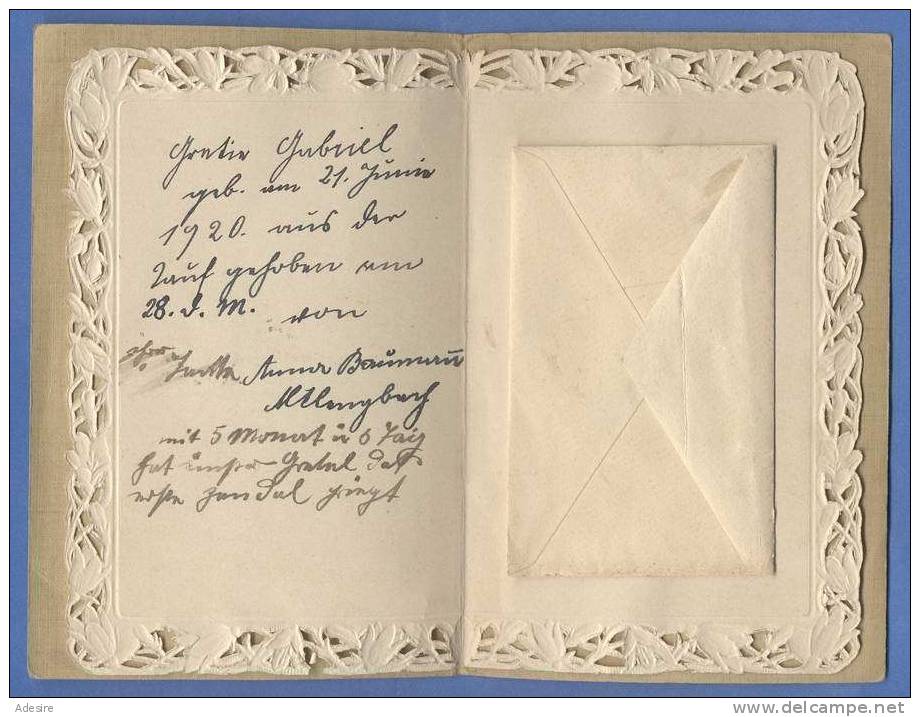 Gretie Gabriel
geb. am 21. Junie
1920. aus der
Tauf gehoben am
28. d. M. von
Anna Baumann
Altlengbach
mit 5 Monat ü 6 Tag
hat unser Gretel das
erste zandal
Adesire
delcampe.net